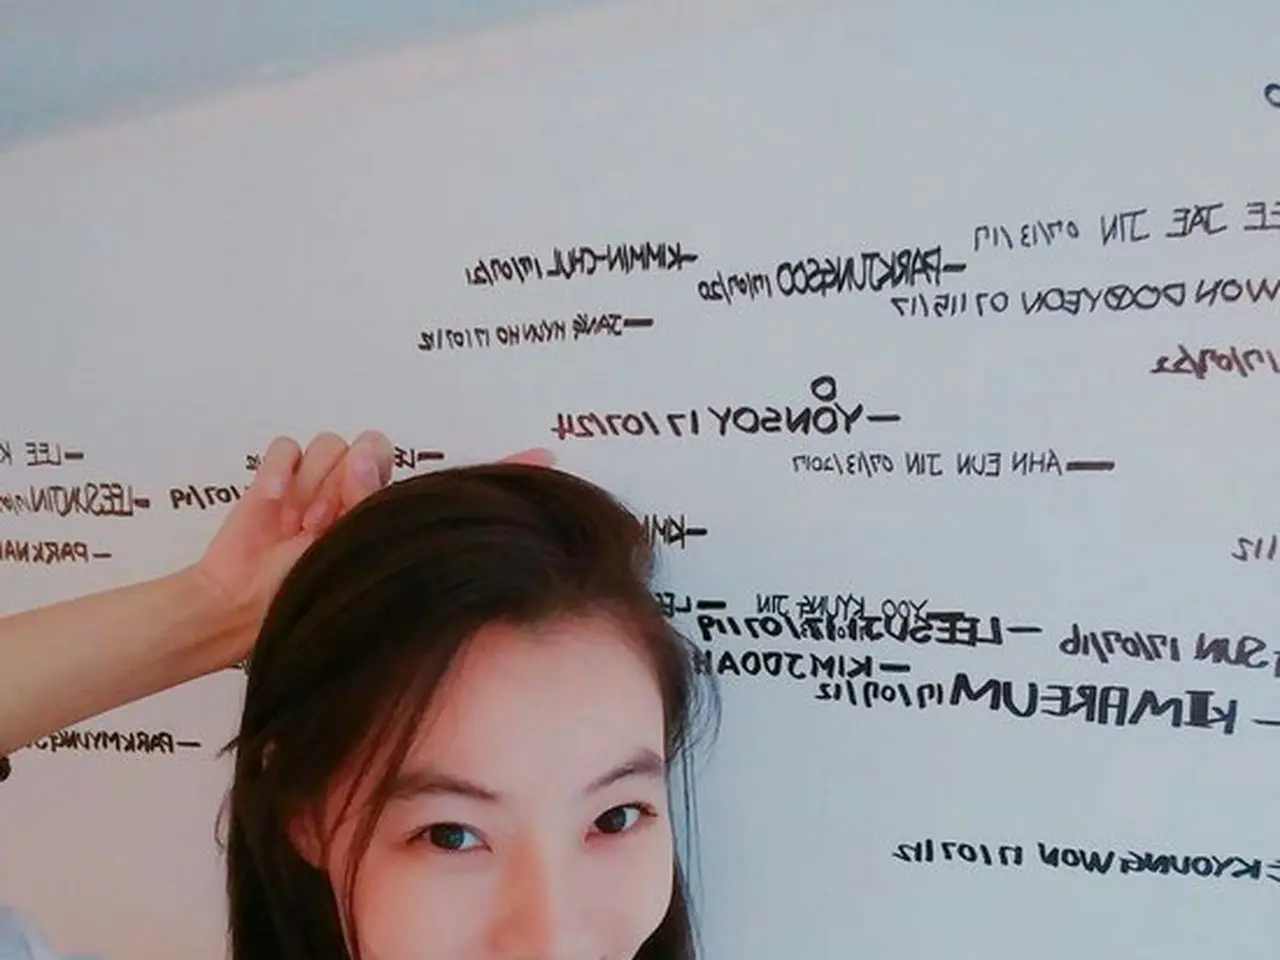 EE JAE JIN 07/13/17
-KIMMIN-CHUL 17/07/21
-PARKJUNGSOO 17/07/20
WON DOOYEON 07/15/17
-JANG HYUN HO 17/07/12
17/07/22
-YONSOY 17/07/24
-AHN EUN JIN 07/13/2017
-LEE K
-LE
-LEESUNJIN
/07/19
-PARKNA
-KIM
/12
-LEE
-YOO KYUNG JIN
-LEESU
17/07/19
SUN 17/07/16
-KIMJOOAH
-KIMAREUM 17/07/12
-PARKMYUNGS
KYOUNGWON 17/07/12